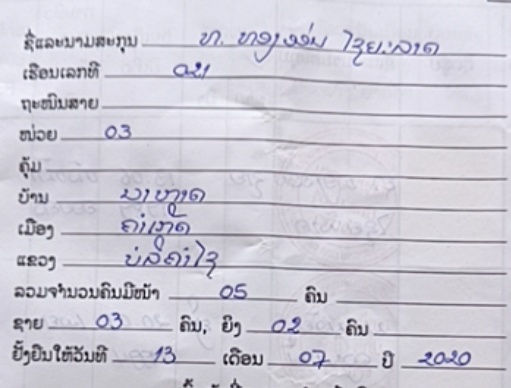 ຊື່ແລະນາມສະກຸນ ທ. ທອງວອ່ນ ໄຊຍະລາດ
ເຮືອນເລກທີ 021
ຖະໜົນສາຍ
ໜ່ວຍ 03
ຄຸ້ມ
ບ້ານ ນາຫາດ
ເມືອງ ຄຳເກີດ
ແຂວງ ບໍລິຄຳໄຊ
ລວມຈຳນວນຄົນມີໜ້າ 05 ຄົນ
ຊາຍ 03 ຄົນ, ຍິງ 02 ຄົນ
ຢັ້ງຢືນໃຫ້ວັນທີ 13 ເດືອນ 07 ປີ 2020